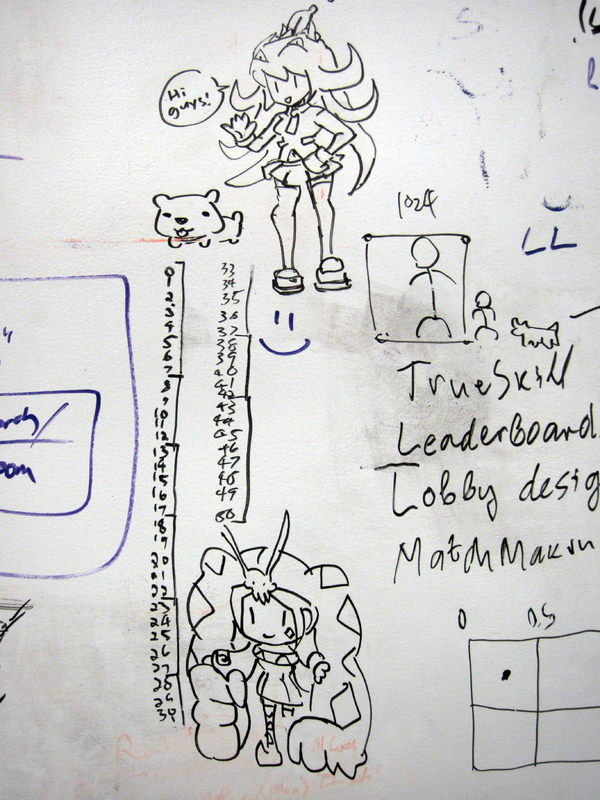 Hi
guys!
1024
LL
TrueSkill
LeaderBoard
Lobby desig
MatchMakin
0 0.5
0
1
2
3
4
5
6
7
8
9
10
11
12
13
14
15
16
17
18
19
20
21
22
23
24
25
26
27
28
29
30
33
34
35
36
37
38
39
40
41
42
43
44
45
46
47
48
49
50
oom